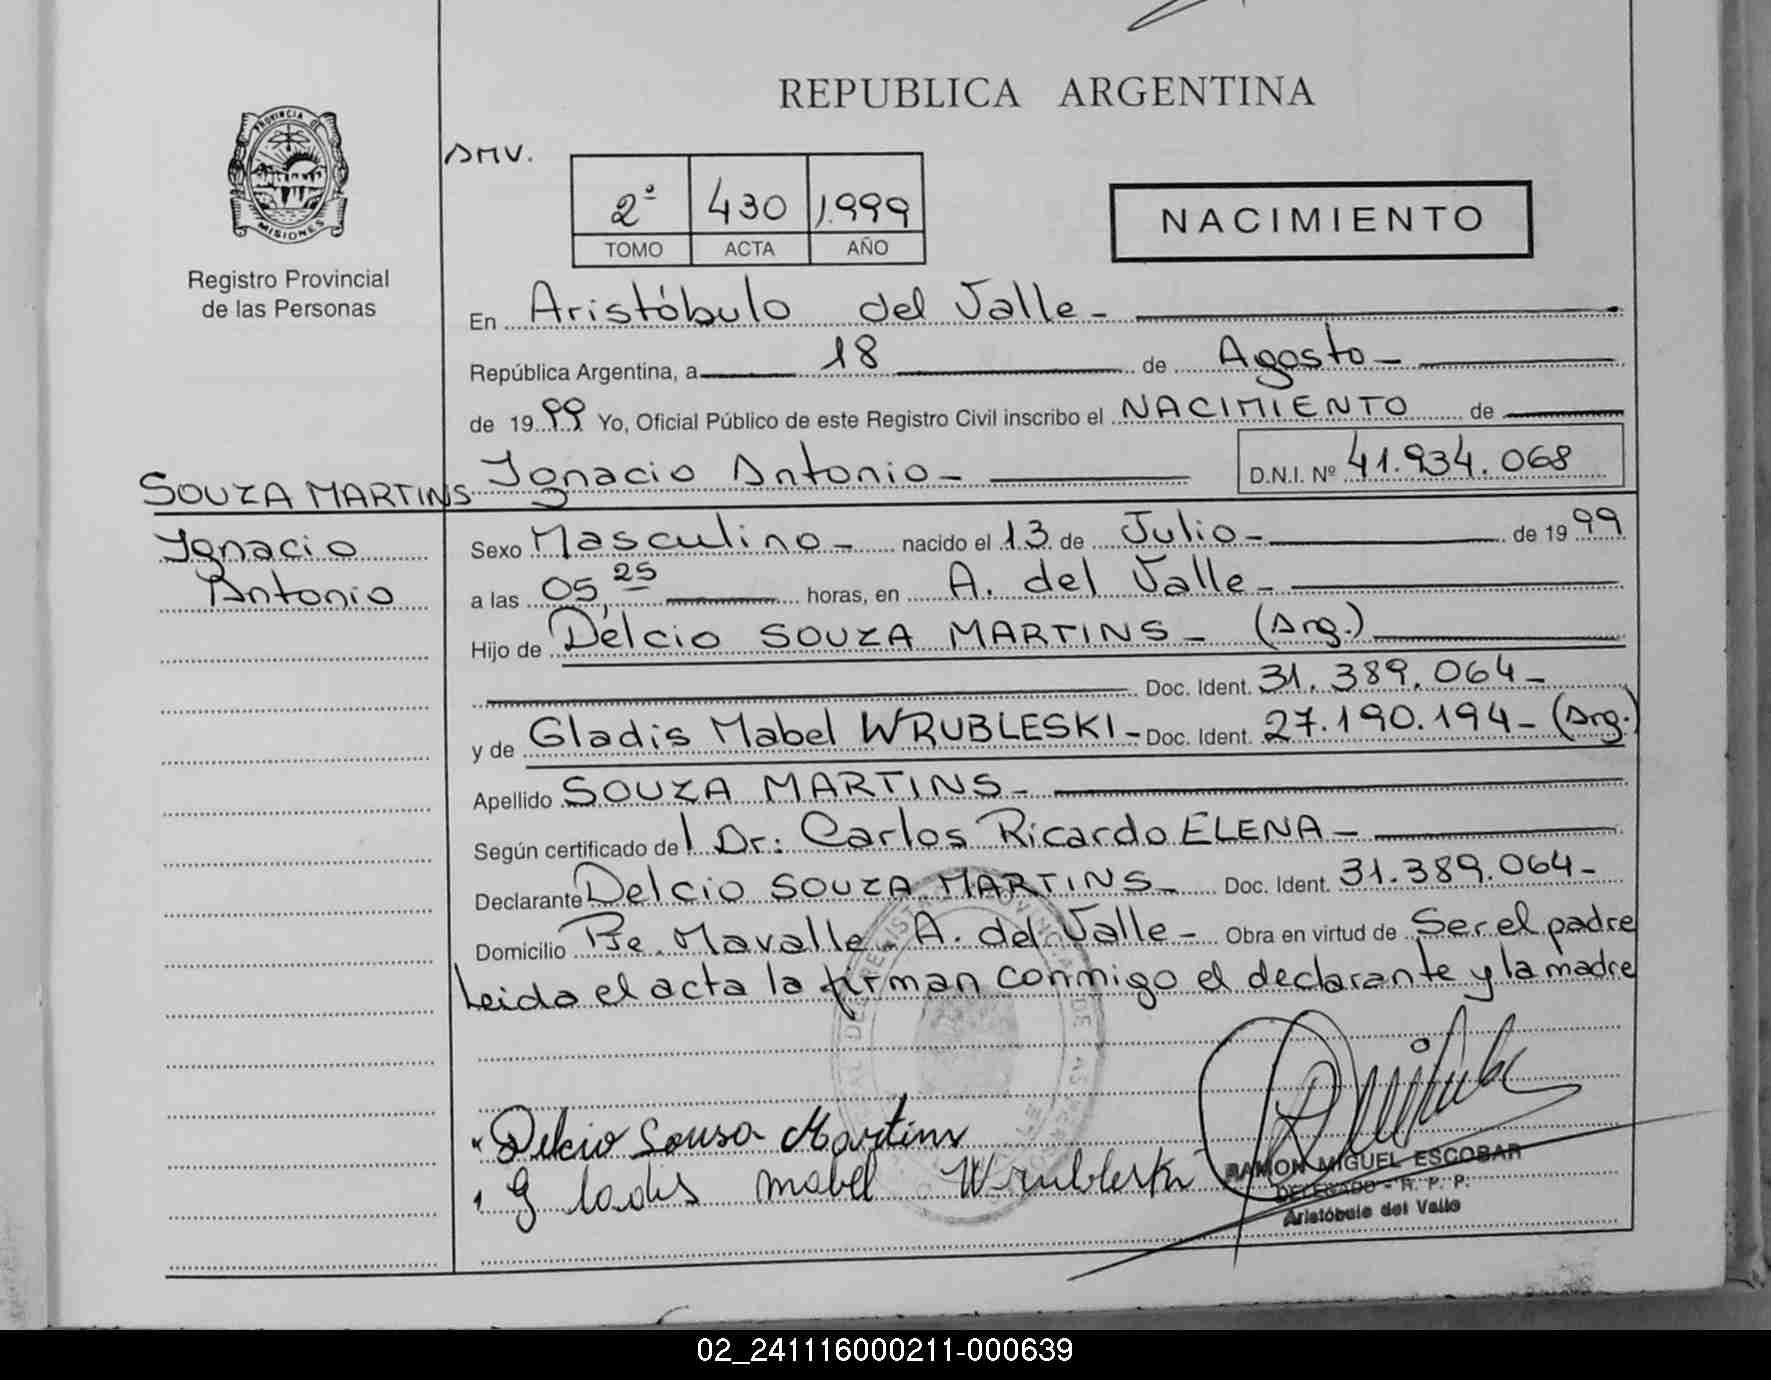 REPUBLICA ARGENTINA
PROVINCIA DE
MISIONES
Registro Provincial
de las Personas
2º 430 1.999
TOMO ACTA AÑO
NACIMIENTO
En Aristóbulo del Valle -
República Argentina, a 18 de Agosto -
de 19 99 Yo, Oficial Público de este Registro Civil inscribo el NACIMIENTO de
SOUZA MARTINS Ignacio Antonio - D.N.I. Nº 41.934.068
Ignacio Sexo Masculino - nacido el 13 de Julio - de 19 99
Antonio a las 05,25 horas, en A. del Valle -
Hijo de Délcio SOUZA MARTINS - (Arg.)
Doc. Ident. 31.389.064 -
y de Gladis Mabel WRUBLESKI - Doc. Ident. 27.190.194 - (Arg.)
Apellido SOUZA MARTINS -
Según certificado del Dr: Carlos Ricardo ELENA -
Declarante Delcio SOUZA MARTINS - Doc. Ident. 31.389.064 -
Domicilio Pje. Mavalle - A. del Valle - Obra en virtud de Ser el padre
Leida el acta la firman conmigo el declarante y la madre
Delcio Sousa Martins
Gladis mabel Wrubleski
RAMON MIGUEL ESCOBAR
DELEGADO - R. P. P.
Aristóbulo del Valle
02_241116000211-000639